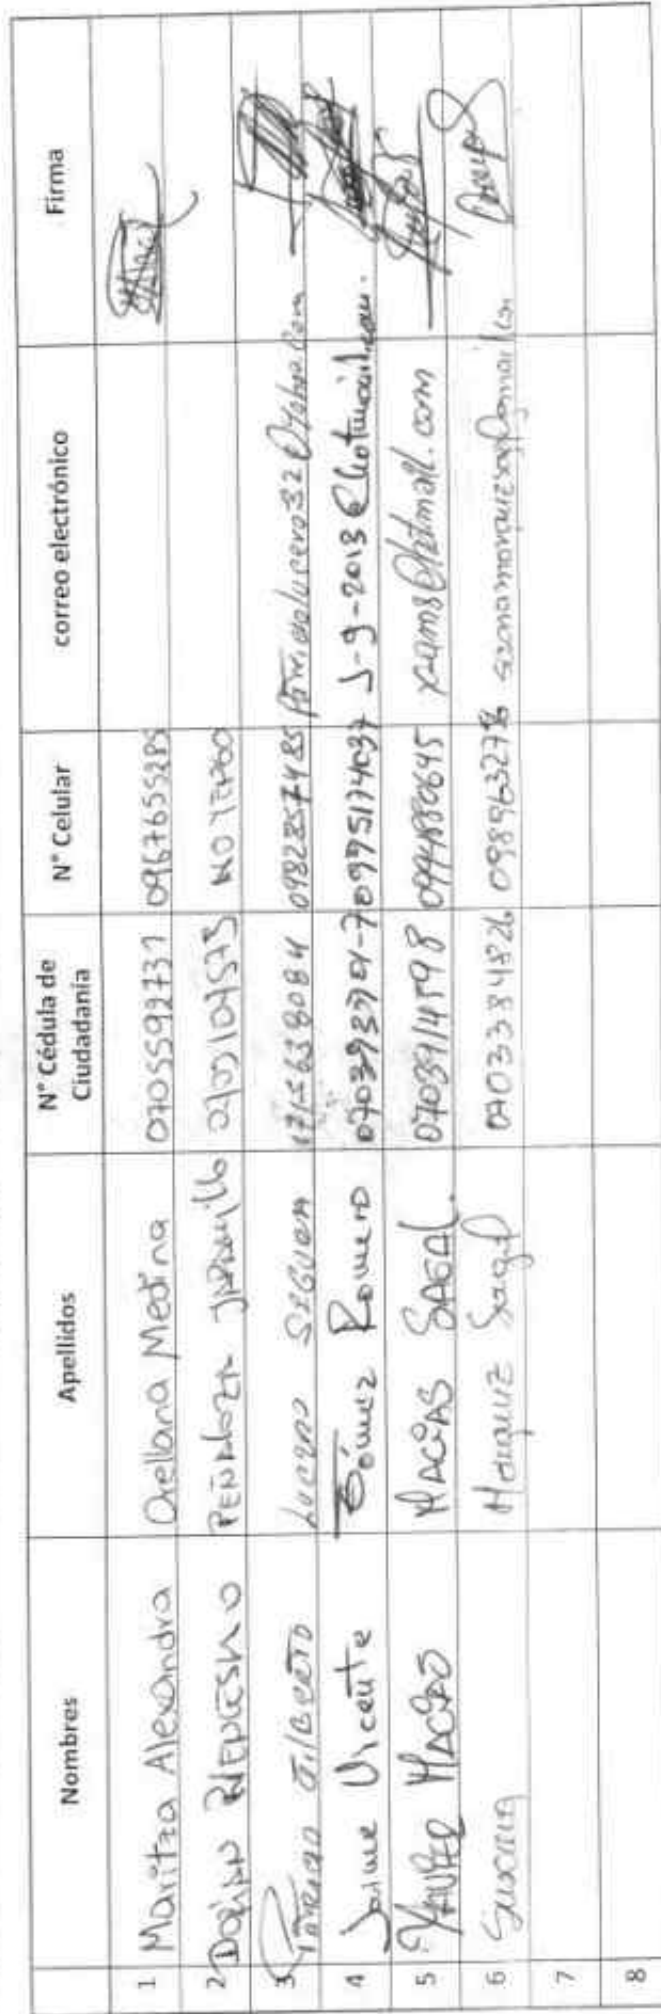 Nombres Apellidos N° Cédula de Ciudadanía N° Celular correo electrónico Firma
1 Maritza Alexandra Orellana Medina 0705592731 0967655285
2 PEÑALOZA JARAMILLO NO TENGO
3 Patricio Gilberto Lucero SEGURA 1715638084 0982857485 patriciolucero32@yahoo.com
4 Jaime Vicente Gómez Romero 070393701-7 0975174037 J-9-2013@hotmail.com.
5 XAVIER MACIAS SAGAL. 0703914598 xams@hotmail.com
6 Susana Marquez Sagal 0703384826 0989632778
7
8